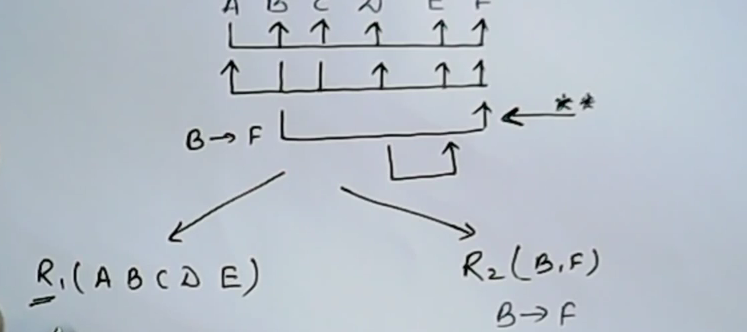 A B C D E F
B → F
**
R₁(A B C D E)
R₂(B,F)
B → F